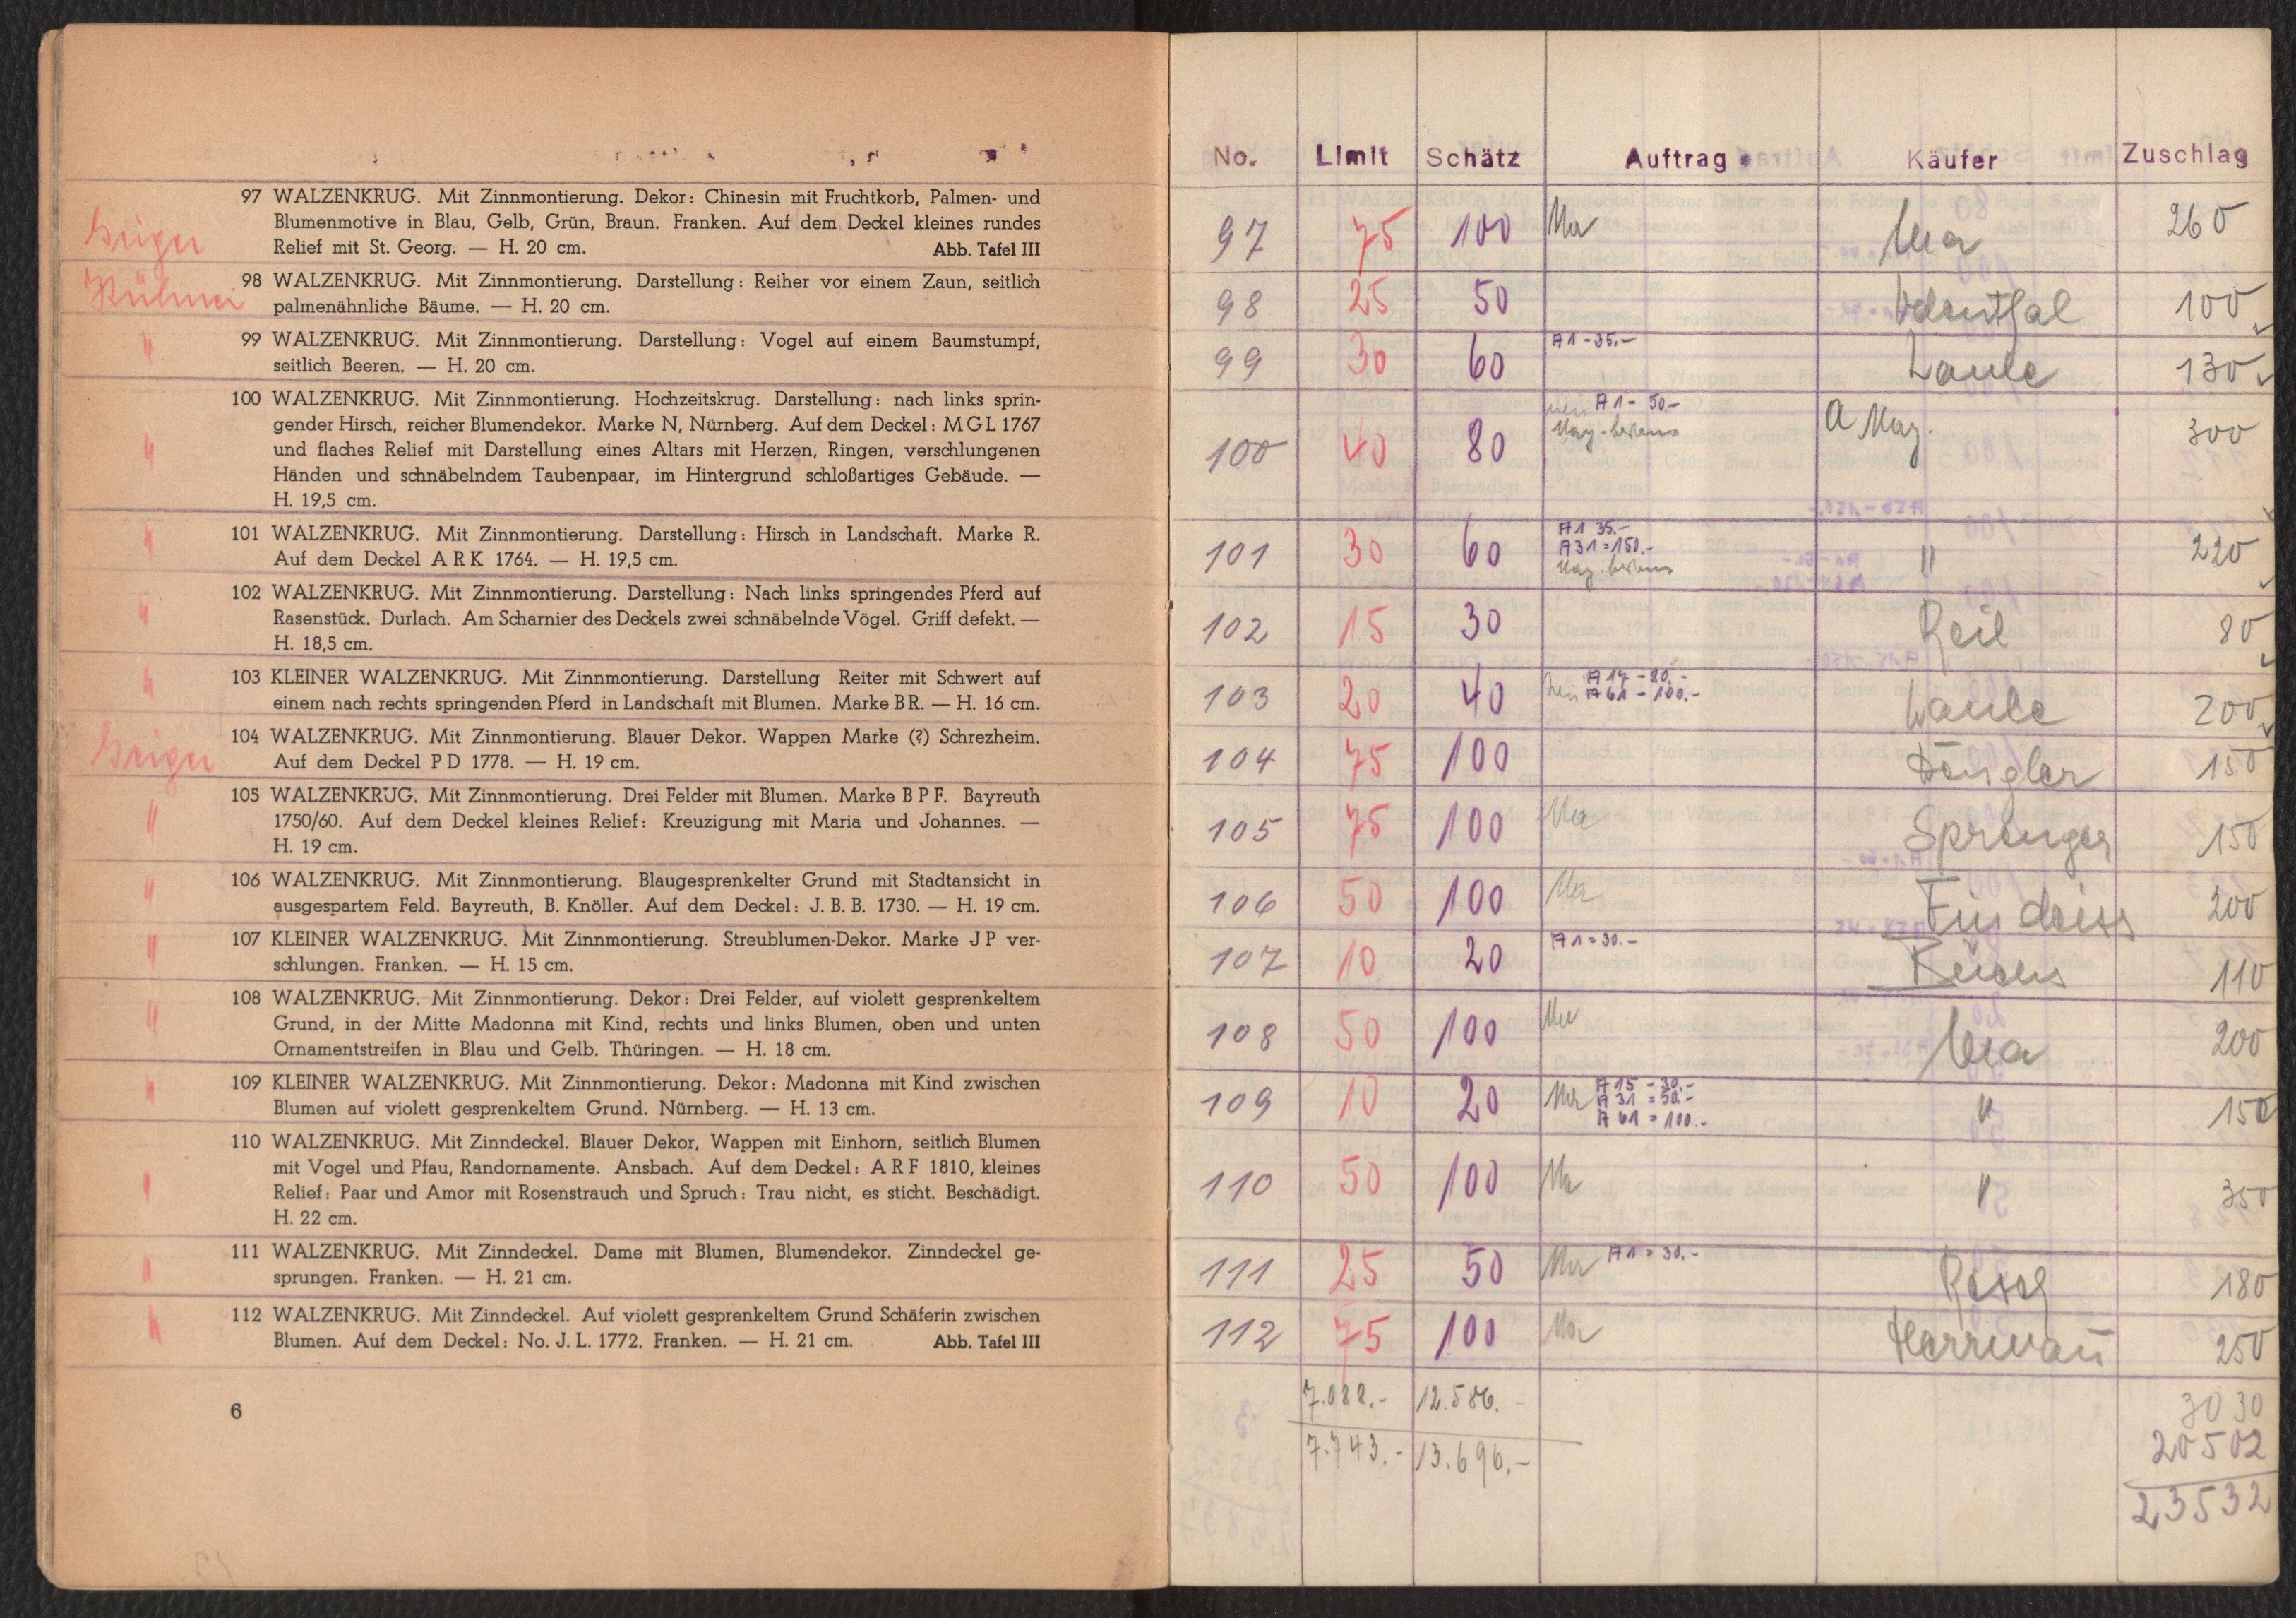 97 WALZENKRUG. Mit Zinnmontierung. Dekor: Chinesin mit Fruchtkorb, Palmen- und
Blumenmotive in Blau, Gelb, Grün, Braun. Franken. Auf dem Deckel kleines rundes
Relief mit St. Georg. — H. 20 cm. Abb. Tafel III
98 WALZENKRUG. Mit Zinnmontierung. Darstellung: Reiher vor einem Zaun, seitlich
palmenähnliche Bäume. — H. 20 cm.
99 WALZENKRUG. Mit Zinnmontierung. Darstellung: Vogel auf einem Baumstumpf,
seitlich Beeren. — H. 20 cm.
100 WALZENKRUG. Mit Zinnmontierung. Hochzeitskrug. Darstellung: nach links sprin-
gender Hirsch, reicher Blumendekor. Marke N, Nürnberg. Auf dem Deckel: M G L 1767
und flaches Relief mit Darstellung eines Altars mit Herzen, Ringen, verschlungenen
Händen und schnäbelndem Taubenpaar, im Hintergrund schloßartiges Gebäude. —
H. 19,5 cm.
101 WALZENKRUG. Mit Zinnmontierung. Darstellung: Hirsch in Landschaft. Marke R.
Auf dem Deckel A R K 1764. — H. 19,5 cm.
102 WALZENKRUG. Mit Zinnmontierung. Darstellung: Nach links springendes Pferd auf
Rasenstück. Durlach. Am Scharnier des Deckels zwei schnäbelnde Vögel. Griff defekt. —
H. 18,5 cm.
103 KLEINER WALZENKRUG. Mit Zinnmontierung. Darstellung Reiter mit Schwert auf
einem nach rechts springenden Pferd in Landschaft mit Blumen. Marke BR. — H. 16 cm.
104 WALZENKRUG. Mit Zinnmontierung. Blauer Dekor. Wappen Marke (?) Schrezheim.
Auf dem Deckel P D 1778. — H. 19 cm.
105 WALZENKRUG. Mit Zinnmontierung. Drei Felder mit Blumen. Marke B P F. Bayreuth
1750/60. Auf dem Deckel kleines Relief: Kreuzigung mit Maria und Johannes. —
H. 19 cm.
106 WALZENKRUG. Mit Zinnmontierung. Blaugesprenkelter Grund mit Stadtansicht in
ausgespartem Feld. Bayreuth, B. Knöller. Auf dem Deckel: J. B. B. 1730. — H. 19 cm.
107 KLEINER WALZENKRUG. Mit Zinnmontierung. Streublumen-Dekor. Marke J P ver-
schlungen. Franken. — H. 15 cm.
108 WALZENKRUG. Mit Zinnmontierung. Dekor: Drei Felder, auf violett gesprenkeltem
Grund, in der Mitte Madonna mit Kind, rechts und links Blumen, oben und unten
Ornamentstreifen in Blau und Gelb. Thüringen. — H. 18 cm.
109 KLEINER WALZENKRUG. Mit Zinnmontierung. Dekor: Madonna mit Kind zwischen
Blumen auf violett gesprenkeltem Grund. Nürnberg. — H. 13 cm.
110 WALZENKRUG. Mit Zinndeckel. Blauer Dekor, Wappen mit Einhorn, seitlich Blumen
mit Vogel und Pfau, Randornamente. Ansbach. Auf dem Deckel: A R F 1810, kleines
Relief: Paar und Amor mit Rosenstrauch und Spruch: Trau nicht, es sticht. Beschädigt.
H. 22 cm.
111 WALZENKRUG. Mit Zinndeckel. Dame mit Blumen, Blumendekor. Zinndeckel ge-
sprungen. Franken. — H. 21 cm.
112 WALZENKRUG. Mit Zinndeckel. Auf violett gesprenkeltem Grund Schäferin zwischen
Blumen. Auf dem Deckel: No. J. L. 1772. Franken. — H. 21 cm. Abb. Tafel III
6
No. Limit Schätz Auftrag Käufer Zuschlag
97 75 100 260
98 25 50 100
99 30 60 A1 - 35.- 130
100 40 80 A1 - 50.- A May. 300
101 30 60 A1 35.- " 220
A31 = 150.-
102 15 30 Reil 80
103 20 40 A 14 - 80.- 200
A 61 - 100.-
104 75 100 150
105 75 100 Sprenger 150
106 50 100 200
107 10 20 A1 = 30.- 110
108 50 100 200
109 10 20 A 15 - 30.- " 150
A 31 = 50.-
A 61 = 100.-
110 50 100 " 350
111 25 50 A1 = 30.- 180
112 75 100 Herrmann 250
7.088.- 12.586.- 3030
7.743.- 13.696.- 20502
23532